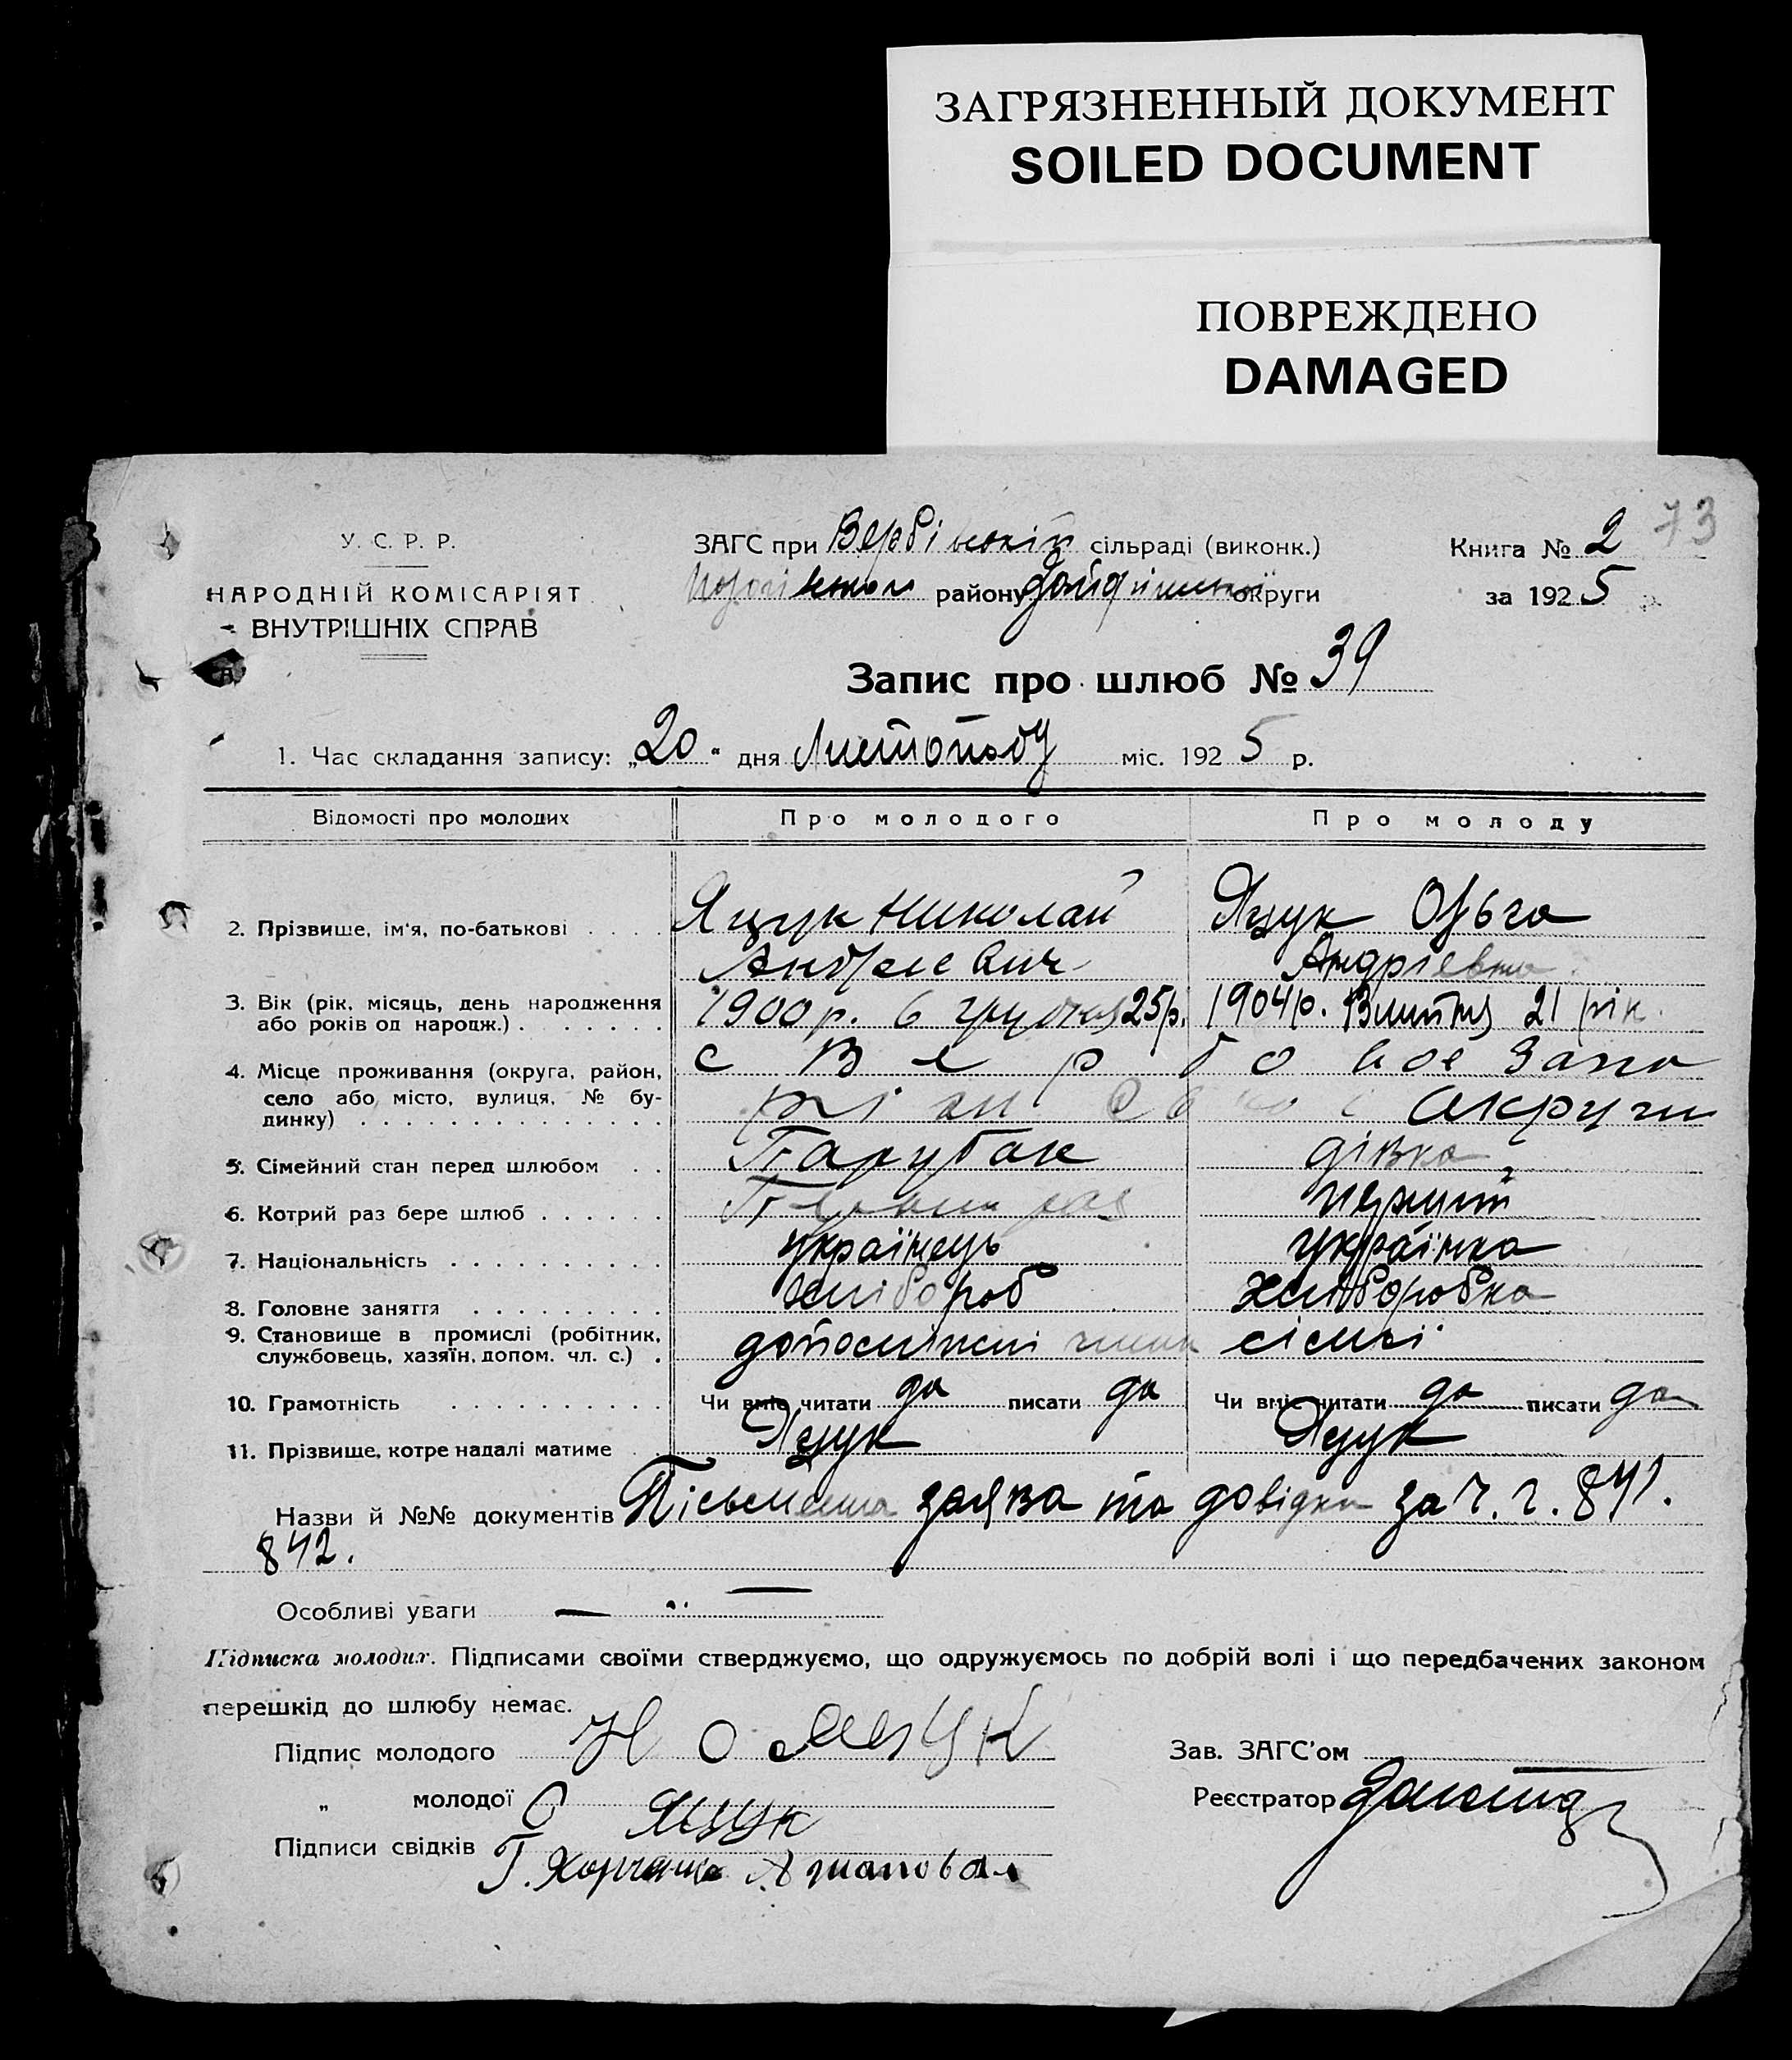 ЗАГРЯЗНЕННЫЙ ДОКУМЕНТ
SOILED DOCUMENT
ПОВРЕЖДЕНО
DAMAGED
73
У. С. Р. Р.
НАРОДНІЙ КОМІСАРІЯТ
ВНУТРІШНІХ СПРАВ
ЗАГС при Вербівській сільраді (виконк.)
району округи
Книга № 2
за 1925
Запис про шлюб № 39
1. Час складання запису: „20“ дня Листопаду міс. 1925 р.
Відомості про молодих Про молодого Про молоду
2. Прізвище, ім'я, по-батькові . . . . Яцук Николай Яцук Ольга
Андреевич Андріевна
3. Вік (рік, місяць, день народження 1900 р. 6 грудня 25 р. 1904 р. 21 рік.
або років од народж.) . . . . . . .
4. Місце проживання (округа, район, с Вербовое Запо
село або місто, вулиця, № бу- округи
динку) . . . . . . . . . . . . . .
5. Сімейний стан перед шлюбом . . Парубок дівка
6. Котрий раз бере шлюб . . . . . . перший
7. Національність . . . . . . . . . . українець українка
8. Головне заняття . . . . . . . . . хлібороб хліборобка
9. Становище в промислі (робітник, допоміжні члени сімьї
службовець, хазяїн, допом. чл. с.) .
10. Грамотність . . . . . . . . . . Чи вміє читати да писати да Чи вміє читати да писати да
11. Прізвище, котре надалі матиме . . Яцук Яцук
Назви й №№ документів Письменна заява та довідки за ч. ч. 841.
842.
Особливі уваги —
Підписка молодих. Підписами своїми стверджуємо, що одружуємось по добрій волі і що передбачених законом
перешкід до шлюбу немає.
Підпис молодого Зав. ЗАГС'ом
„ молодої О Яцук Реєстратор
Підписи свідків